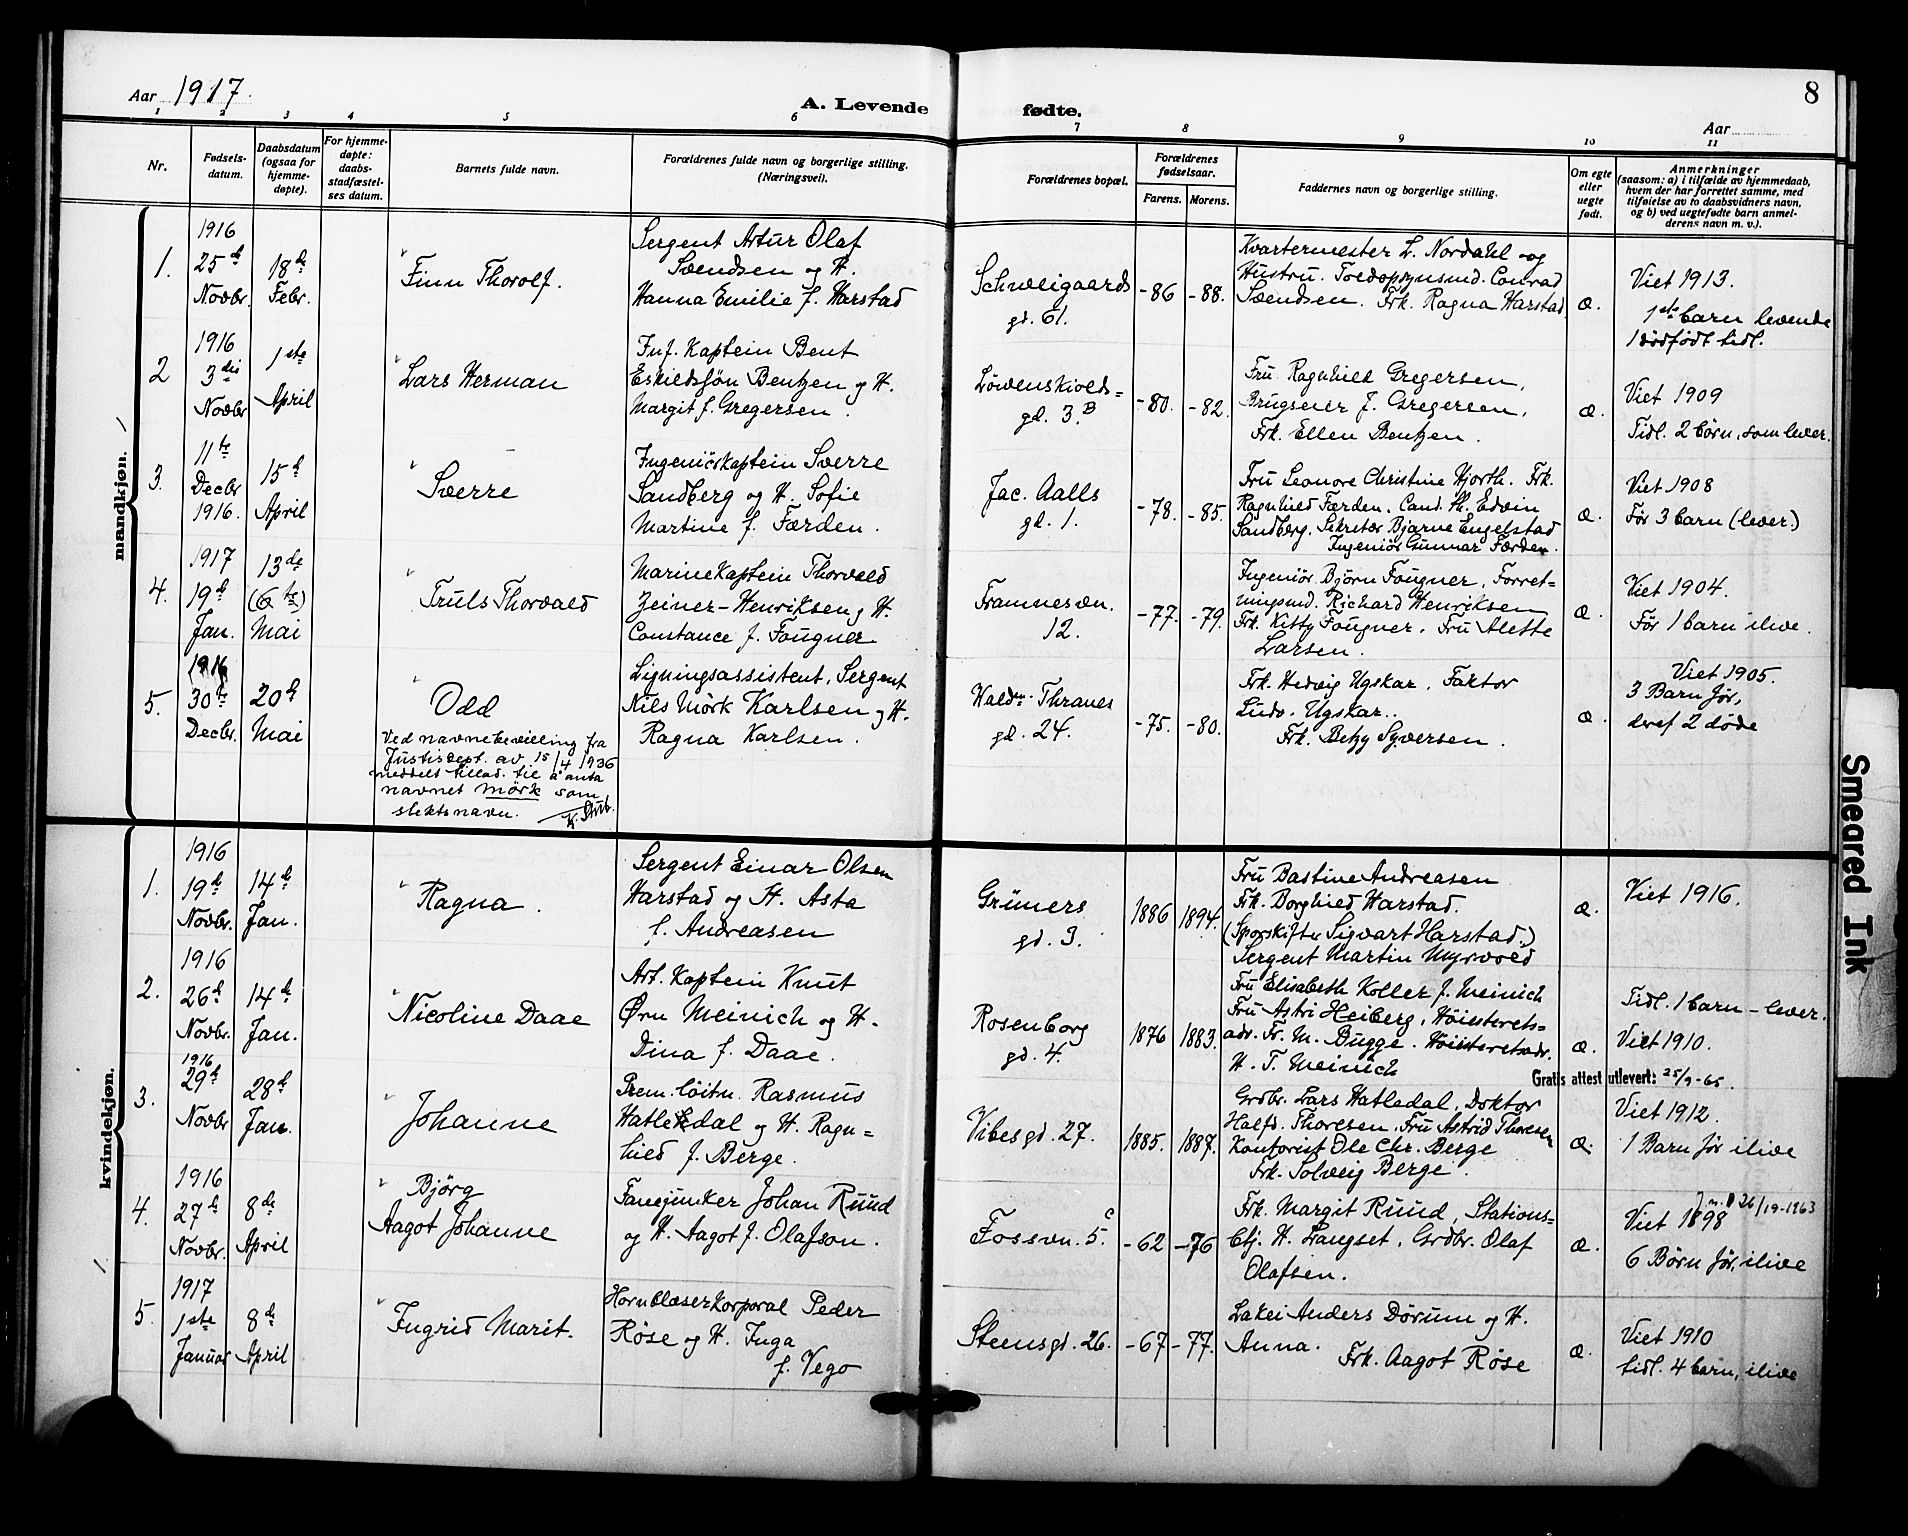 Aar 1917.
A. Levende fødte.
8
Aar
1 2 3 4 5 6 7 8 9 10 11
Nr.
Fødsels-
datum.
Daabsdatum
(ogsaa for
hjemme-
døpte).
For hjemme-
døpte:
daabs-
stadfæstel-
ses datum.
Barnets fulde navn.
Forældrenes fulde navn og borgerlige stilling.
(Næringsvei).
Forældrenes bopæl.
Forældrenes
fødselsaar.
Farens. Morens.
Faddernes navn og borgerlige stilling.
Om egte
eller
uegte
født.
Anmerkninger
(saasom: a) i tilfælde av hjemmedaab,
hvem der har forrettet samme, med
tilføielse av to daabsvidners navn,
og b) ved uegtefødte barn anmel-
derens navn m. v.).
mandkjøn.
1.
1916
25de
Novbr.
18de
Febr.
Finn Thorolf.
Sergent Artur Olaf
Svendsen og H.
Hanna Emilie f. Harstad
Schweigaards
gd. 61.
-86 -88.
Kvartermester L. Nordahl og
Hustru. Toldopsynsmd. Conrad
Svendsen. Frk. Ragna Harstad
æ.
Viet 1913.
1ste barn levende
1 dödfödt tidl.
2
1916
3die
Novbr
1ste
April
Lars Herman
Inf. Kaptein Bent
Eskildsjön Bentzen og H.
Margit f. Gregersen.
Løvenskiolds=
gd. 3.B
-80. -82.
Fru Ragnhild Gregersen,
Brugseier J. Gregersen,
Frk. Ellen Bentzen.
æ.
Viet 1909
Tidl. 2 børn, som lever.
3.
11te
Decbr
1916.
15de
April
Sverre
Ingeniörkaptein Sverre
Sandberg og H. Sofie
Martine f. Færden.
Jac. Aalls
gd. 1.
-78. -85.
Fru Leonore Christine Hjorth. Frk.
Ragnhild Færden. Cand. Ph. Edvin
Sandberg. Sekretær Bjarne Engelstad
Ingeniör Gunnar Færden.
æ.
Viet 1908
Før 3 barn (lever.)
4.
1917
19de
Jan.
13de
(6te)
Mai
Truls Thorvald
Marinekaptein Thorvald
Zeiner-Henriksen og H.
Constance f. Fougner
Framnesvn.
12.
-77. -79.
Ingeniör Björn Fougner, Forret-
ningsmd. Richard Henriksen
Frk. Kitty Fougner. Fru Alette
Larsen.
æ.
Viet 1904.
För 1 barn ilive.
5.
1916
30te
Decbr.
20de
Mai
Odd
Ved navnebevilling fra
Justisdept. av 15/4 1936
meddelt tillad. til å anta
navnet mörk som
slektsnavn.
Ligningsassistent, Sergent
Nils Mörk Karlsen og H.
Ragna Karlsen.
Waldm. Thranes
gd. 24.
-75. -80.
Frk. Hedvig Ugskar. Faktor
Ludv. Ugskar.
Frk. Betzy Syversen.
æ
Viet 1905.
3 Barn för,
deraf 2 döde
kvindekjøn.
1.
1916
19de
Novbr.
14de
Jan.
Ragna.
Sergent Einar Olsen
Harstad og H. Asta
f. Andreasen
Grüners
gd. 3.
1886 1894.
Fru Bastine Andreasen
Frk. Borghild Harstad.
(Sporskifter Sigvart Harstad.)
Sergent Martin Myrvold
æ.
Viet 1916.
2.
1916
26de
Novbr.
14de
Jan.
Nicoline Daae
Art. Kaptein Knut
Ørn Meinich og H.
Dina f. Daae.
Rosenborg
gd. 4.
1876 1883.
Fru Elisabeth Koller f. Meinich
Fru Astri Heiberg, Höiesterets=
adv. Fr. M. Bugge. Höiesteretsadv.
H. T. Meinich
æ.
Tidl. 1 barn - lever.
Viet 1910.
Gratis attest utlevert: 25/9-65.
3.
1916
29de
Novbr
28de
Jan.
Johanne
Prem. löitn. Rasmus
Hatledal og H. Ragn=
hild f. Berge.
Vibesgd. 27.
1885. 1887.
Grdbr. Lars Hatledal, Doktor
Halfd. Thoresen. Fru Astrid Thoresen
Kontorist Ole Chr. Berge
Frk. Solveig Berge.
æ.
Viet 1912.
1 Barn för ilive
4.
1916
27de
Novbr.
8de
April
Björg
Aagot Johanne
Fanejunker Johan Ruud
og H. Aagot f. Olafson.
Fossvn. 5.c
-62 -76
Frk. Margit Ruud, Stations=
btj. H. Langset, Grdbr. Olaf
Olafsen.
æ.
Viet 1898
6 Børn før, ilive
5.
1917
1ste
Januar
8de
April
Ingrid Marit.
Hornblæserkorporal Peder
Röse og H. Inga
f. Vego
Steensgd. 26.
-67 -77.
Lakei Anders Dörum og H.
Anna. Frk. Aagot Röse
æ.
Viet 1910
tidl. 4 barn, ilive
Smeared Ink